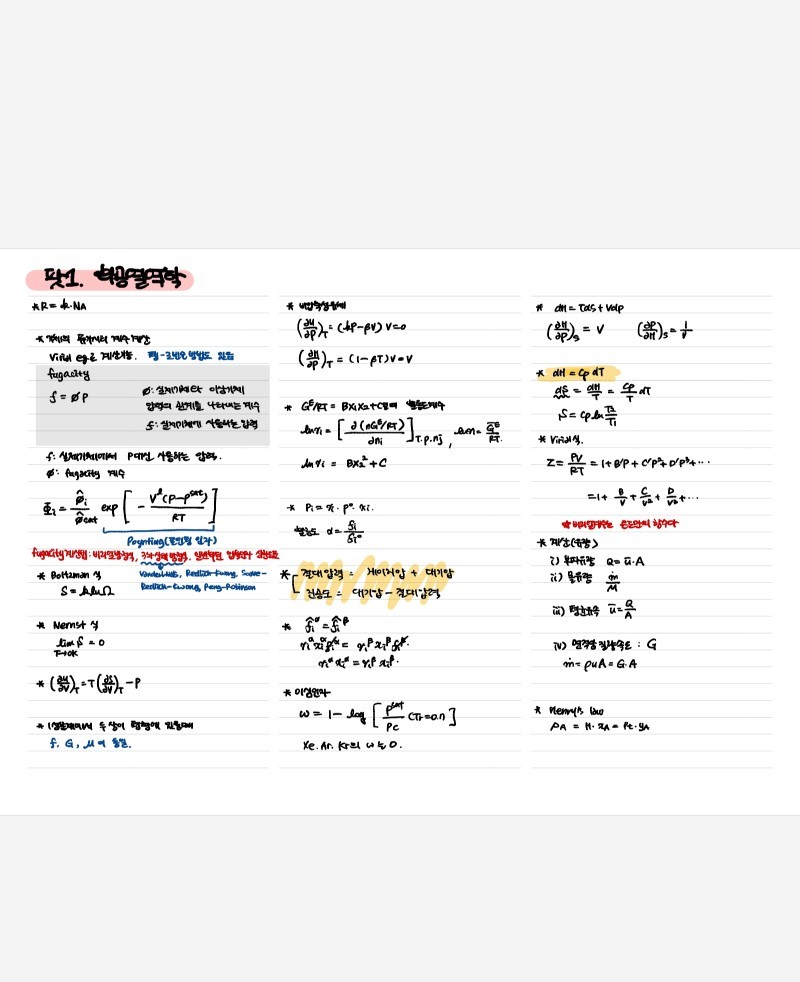 팟1. 화공열역학
* R = k·NA
* 기체의 퓨개시티 계수 계산
Virial eq로 계산가능.
fugacity
f = ø P
ø: 실제기체와 이상기체
압력의 관계를 나타내는 계수
f: 실제기체가 사용하는 압력
f: 실제기체에서 P대신 사용하는 압력.
ø: fugacity 계수
Φi = ø̂i / ø̂sat exp [ - Vˡ(P-Psat) / RT ]
Poynting(포인팅 인자)
fugacity 계산법: 비리얼방정식, 3차상태 방정식.
Vanderwals, Redlich-Kwong, Soave-
Redlich-Kwong, Peng-Robinson
* Boltzman 식
S = k ln Ω
* Nernst 식
lim S = 0
T→0K
* (∂U/∂V)T = T(∂S/∂V)T - P
* 1성분계에서 두 상이 평형에 있을때
f, G, μ 이 동일.
* 비압축성유체
(∂U/∂P)T = (kP-βV) V=0
(∂H/∂P)T = (1-βT)V=V
* Gᴱ/RT = BX1X2+C
ln γi = [ ∂(nGᴱ/RT) / ∂ni ] T.P.nj ,
ln γi = BX₂² + C
* Pi = γi· P°· xi.
활동도 α = fi / fi°
* 절대압력 = 게이지압 + 대기압
진공도 = 대기압 - 절대압력
* f̂iᵅ = f̂iᵝ
γiᵅ xiᵅ fiᵅ = γiᵝ xiᵝ fiᵝ.
γiᵅ xiᵅ = γiᵝ xiᵝ.
* 이심인자
ω = -1 - log [ Psat / Pc (Tr=0.7) ]
Xe. Ar. Kr의 ω ≒ 0.
* dH = Tds + Vdp
(∂H/∂P)s = V (∂P/∂H)s = 1/V
* dH = Cp dT
dS = dH/T = Cp/T dT
S = Cp ln T2/T1
* Virial식.
Z = PV/RT = 1+B'P + C'P²+D'P³+···
= 1+ B/V + C/V² + D/V³ +···
* 비리얼계수는 온도만의 함수다
* 계산(유량)
i) 부피유량 Q= ū·A
ii) 몰유량 ṁ/M
iii) 평균유속 ū= Q/A
iv) 면적당 질량속도 : G
ṁ = ρuA = G·A
* Henry's law
PA = H·xA = Pt·yA